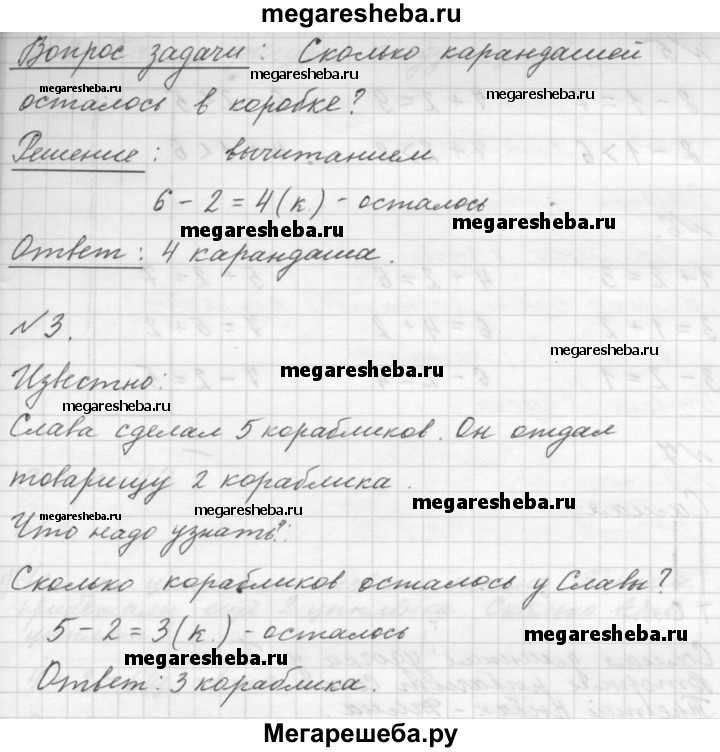 megaresheba.ru
Вопрос задачи: Сколько карандашей
megaresheba.ru
megaresheba.ru
megaresheba.ru
осталось в коробке?
Решение: вычитанием
megaresheba.ru
6 - 2 = 4 (к.) - осталось
megaresheba.ru
megaresheba.ru
Ответ: 4 карандаша.
megaresheba.ru
№3.
megaresheba.ru
megaresheba.ru
Известно:
megaresheba.ru
Слава сделал 5 корабликов. Он отдал
товарищу 2 кораблика.
megaresheba.ru
megaresheba.ru
Что надо узнать?:
Сколько корабликов осталось у Славы?
5 - 2 = 3 (к.) - осталось
megaresheba.ru
megaresheba.ru
Ответ: 3 кораблика.
Мегарешеба.ру